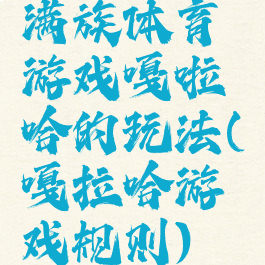 满族体育
游戏嘎啦
哈的玩法(
嘎拉哈游
戏规则)